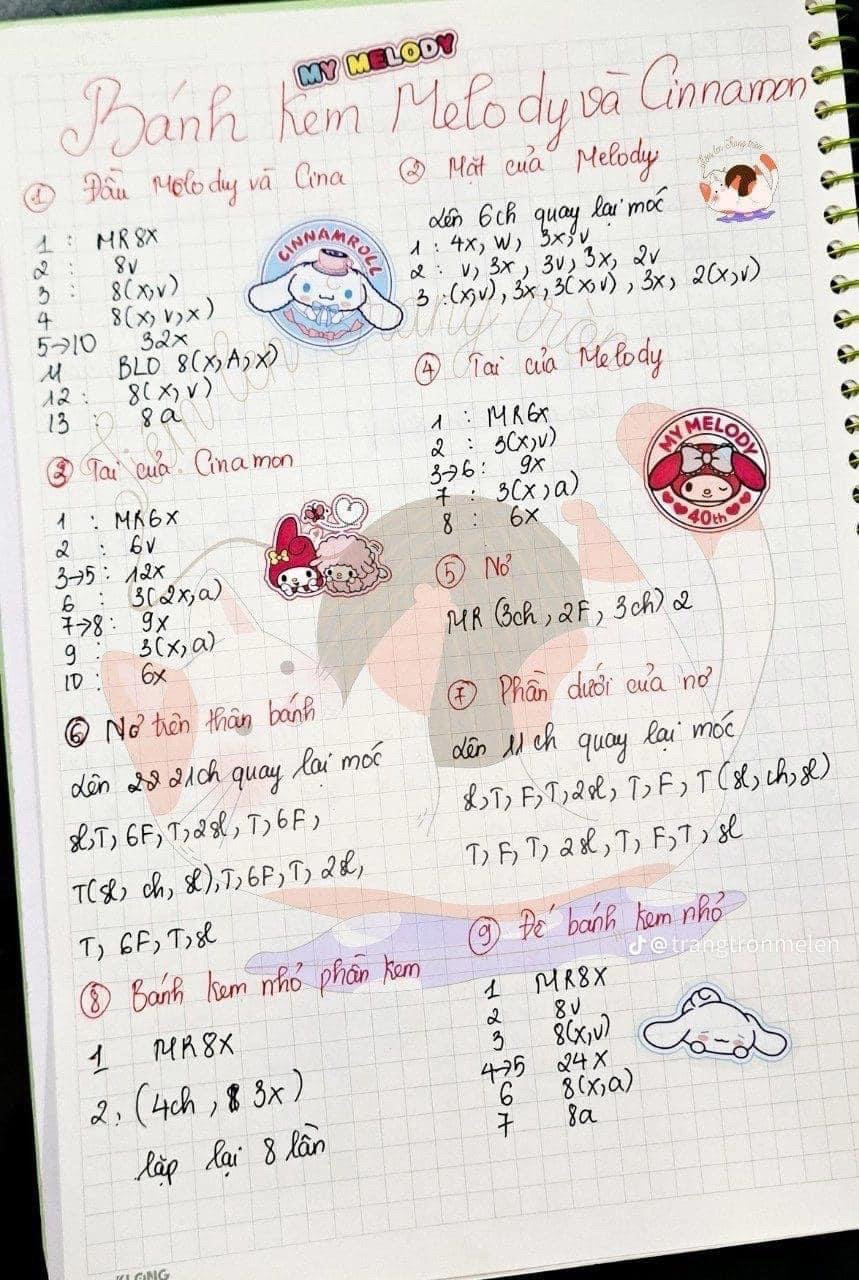 MY MELODY
Bánh kem Melody và Cinnamon
① Đầu Melody và Cina
1 : MR8X
2 : 8v
3 : 8(x,v)
4 8(x, v, x)
5→10 32x
11 BLO 8(X, A, X)
12 : 8(x, v)
13 : 8a
CINNAMROLL
② Mặt của Melody
Lên 6ch quay lại móc
1 : 4x, W, 3x, v
2 : v, 3x, 3v, 3x, 2v
3 : (x,v), 3x, 3(x,v), 3x, 2(x,v)
③ Tai của Cinamon
1 : MR6X
2 : 6v
3→5 : 12x
6 : 3(2x,a)
7→8 : 9x
9 : 3(x,a)
10 : 6x
④ Tai của Melody
1 : MR6x
2 : 3(x,v)
3→6 : 9x
7 : 3(x,a)
8 : 6x
MY MELODY
40th
⑤ Nơ
MR (3ch, 2F, 3ch) 2
⑥ Nơ trên thân bánh
Lên 21ch quay lại móc
sl, T, 6F, T, 2sl, T, 6F,
T(sl, ch, sl), T, 6F, T, 2sl,
T, 6F, T, sl
⑦ Phần dưới của nơ
Lên 11ch quay lại móc
sl, T, F, T, 2sl, T, F, T (sl, ch, sl)
T, F, T, 2sl, T, F, T, sl
⑧ Bánh kem nhỏ phần kem
1 MR8X
2, (4ch, 3x)
lặp lại 8 lần
⑨ Đế bánh kem nhỏ
@trangtronmelen
1 MR8X
2 8v
3 8(x,v)
4→5 24X
6 8(x,a)
7 8a
KLONG